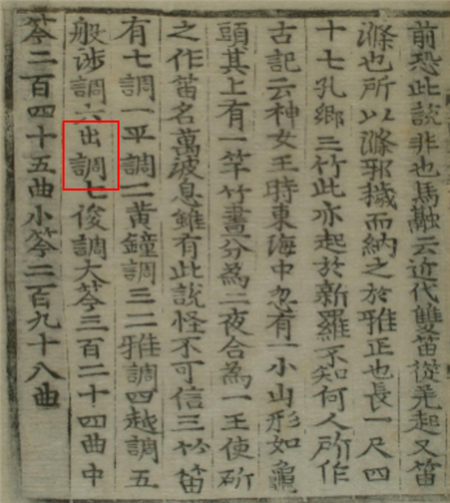 前恐此說非也馬融云近代雙笛從羌起又笛
滌也所以滌邪穢而納之於雅正也長一尺四
十七孔鄉三竹此亦起於新羅不知何人所作
古記云神女王時東海中忽有一小山形如龜
頭其上有一竿竹晝分爲二夜合爲一王使斫
之作笛名萬波息雖有此說怪不可信三竹笛
有七調一平調二黃鐘調三二雅調四越調五
般涉調六出調七俊調大笒三百二十四曲中
笒二百四十五曲小笒二百九十八曲